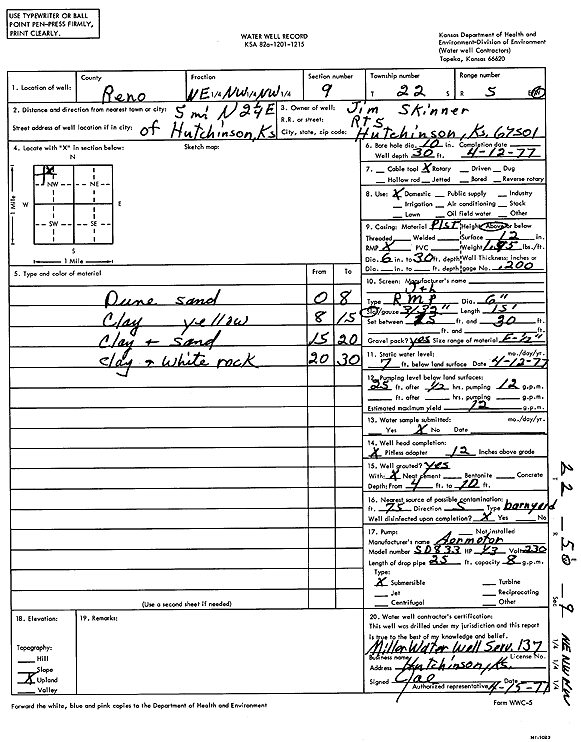 USE TYPEWRITER OR BALL
POINT PEN-PRESS FIRMLY,
PRINT CLEARLY.
WATER WELL RECORD
KSA 82a-1201-1215
Kansas Department of Health and
Environment-Division of Environment
(Water well Contractors)
Topeka, Kansas 66620
1. Location of well:
County Reno
Fraction NE 1/4 NW 1/4 NW 1/4
Section number 9
Township number T 22 S
Range number R 5 E W
2. Distance and direction from nearest town or city: 5 mi N 2¼ E
Street address of well location if in city: of Hutchinson, Ks
3. Owner of well: Jim Skinner
R.R. or street: Rt 5
City, state, zip code: Hutchinson, Ks. 67501
4. Locate with "X" in section below:
Sketch map:
N
X
NW NE
W E
SW SE
S
1 Mile
1 Mile
6. Bore hole dia. 10 in. Completion date
Well depth 30 ft. 4-12-77
7. Cable tool X Rotary Driven Dug
Hollow rod Jetted Bored Reverse rotary
8. Use: X Domestic Public supply Industry
Irrigation Air conditioning Stock
Lawn Oil field water Other
9. Casing: Material Plst Height: Above or below
Threaded Welded Surface 12 in.
RMP X PVC Weight lbs./ft.
Dia. 6 in. to 30 ft. depth Wall Thickness: inches or
Dia. in. to ft. depth gage No. .200
5. Type and color of material From To
Dune sand 0 8
Clay yellow 8 15
Clay + sand 15 20
Clay + White rock 20 30
10. Screen: Manufacturer's name
Type RMP Dia. 6"
Slot/gauze 3/32" Length 15'
Set between 15 ft. and 30 ft.
ft. and ft.
Gravel pack? yes Size range of material
11. Static water level: mo./day/yr.
7 ft. below land surface Date 4-12-77
12. Pumping level below land surfaces:
25 ft. after 1/2 hrs. pumping 12 g.p.m.
ft. after hrs. pumping g.p.m.
Estimated maximum yield 12 g.p.m.
13. Water sample submitted: mo./day/yr.
Yes X No Date
14. Well head completion:
X Pitless adapter 12 Inches above grade
15. Well grouted? yes
With: X Neat cement Bentonite Concrete
Depth: From 4 ft. to 10 ft.
16. Nearest source of possible contamination:
ft. 75 Direction S Type barnyard
Well disinfected upon completion? X Yes No
17. Pump: Not installed
Manufacturer's name Aermotor
Model number SD833 HP 1/3 Volts 230
Length of drop pipe 25 ft. capacity 8 g.p.m.
Type:
X Submersible Turbine
Jet Reciprocating
Centrifugal Other
(Use a second sheet if needed)
18. Elevation:
19. Remarks:
Topography:
Hill
Slope
X Upland
Valley
20. Water well contractor's certification:
This well was drilled under my jurisdiction and this report
is true to the best of my knowledge and belief.
Miller Water Well Serv. 137
Business name License No.
Address Hutchinson, Ks.
Signed 4-15-77
Authorized representative
Forward the white, blue and pink copies to the Department of Health and Environment
Form WWC-5
T R Sec 1/4 1/4 1/4
22-5W-9 NE NW NW